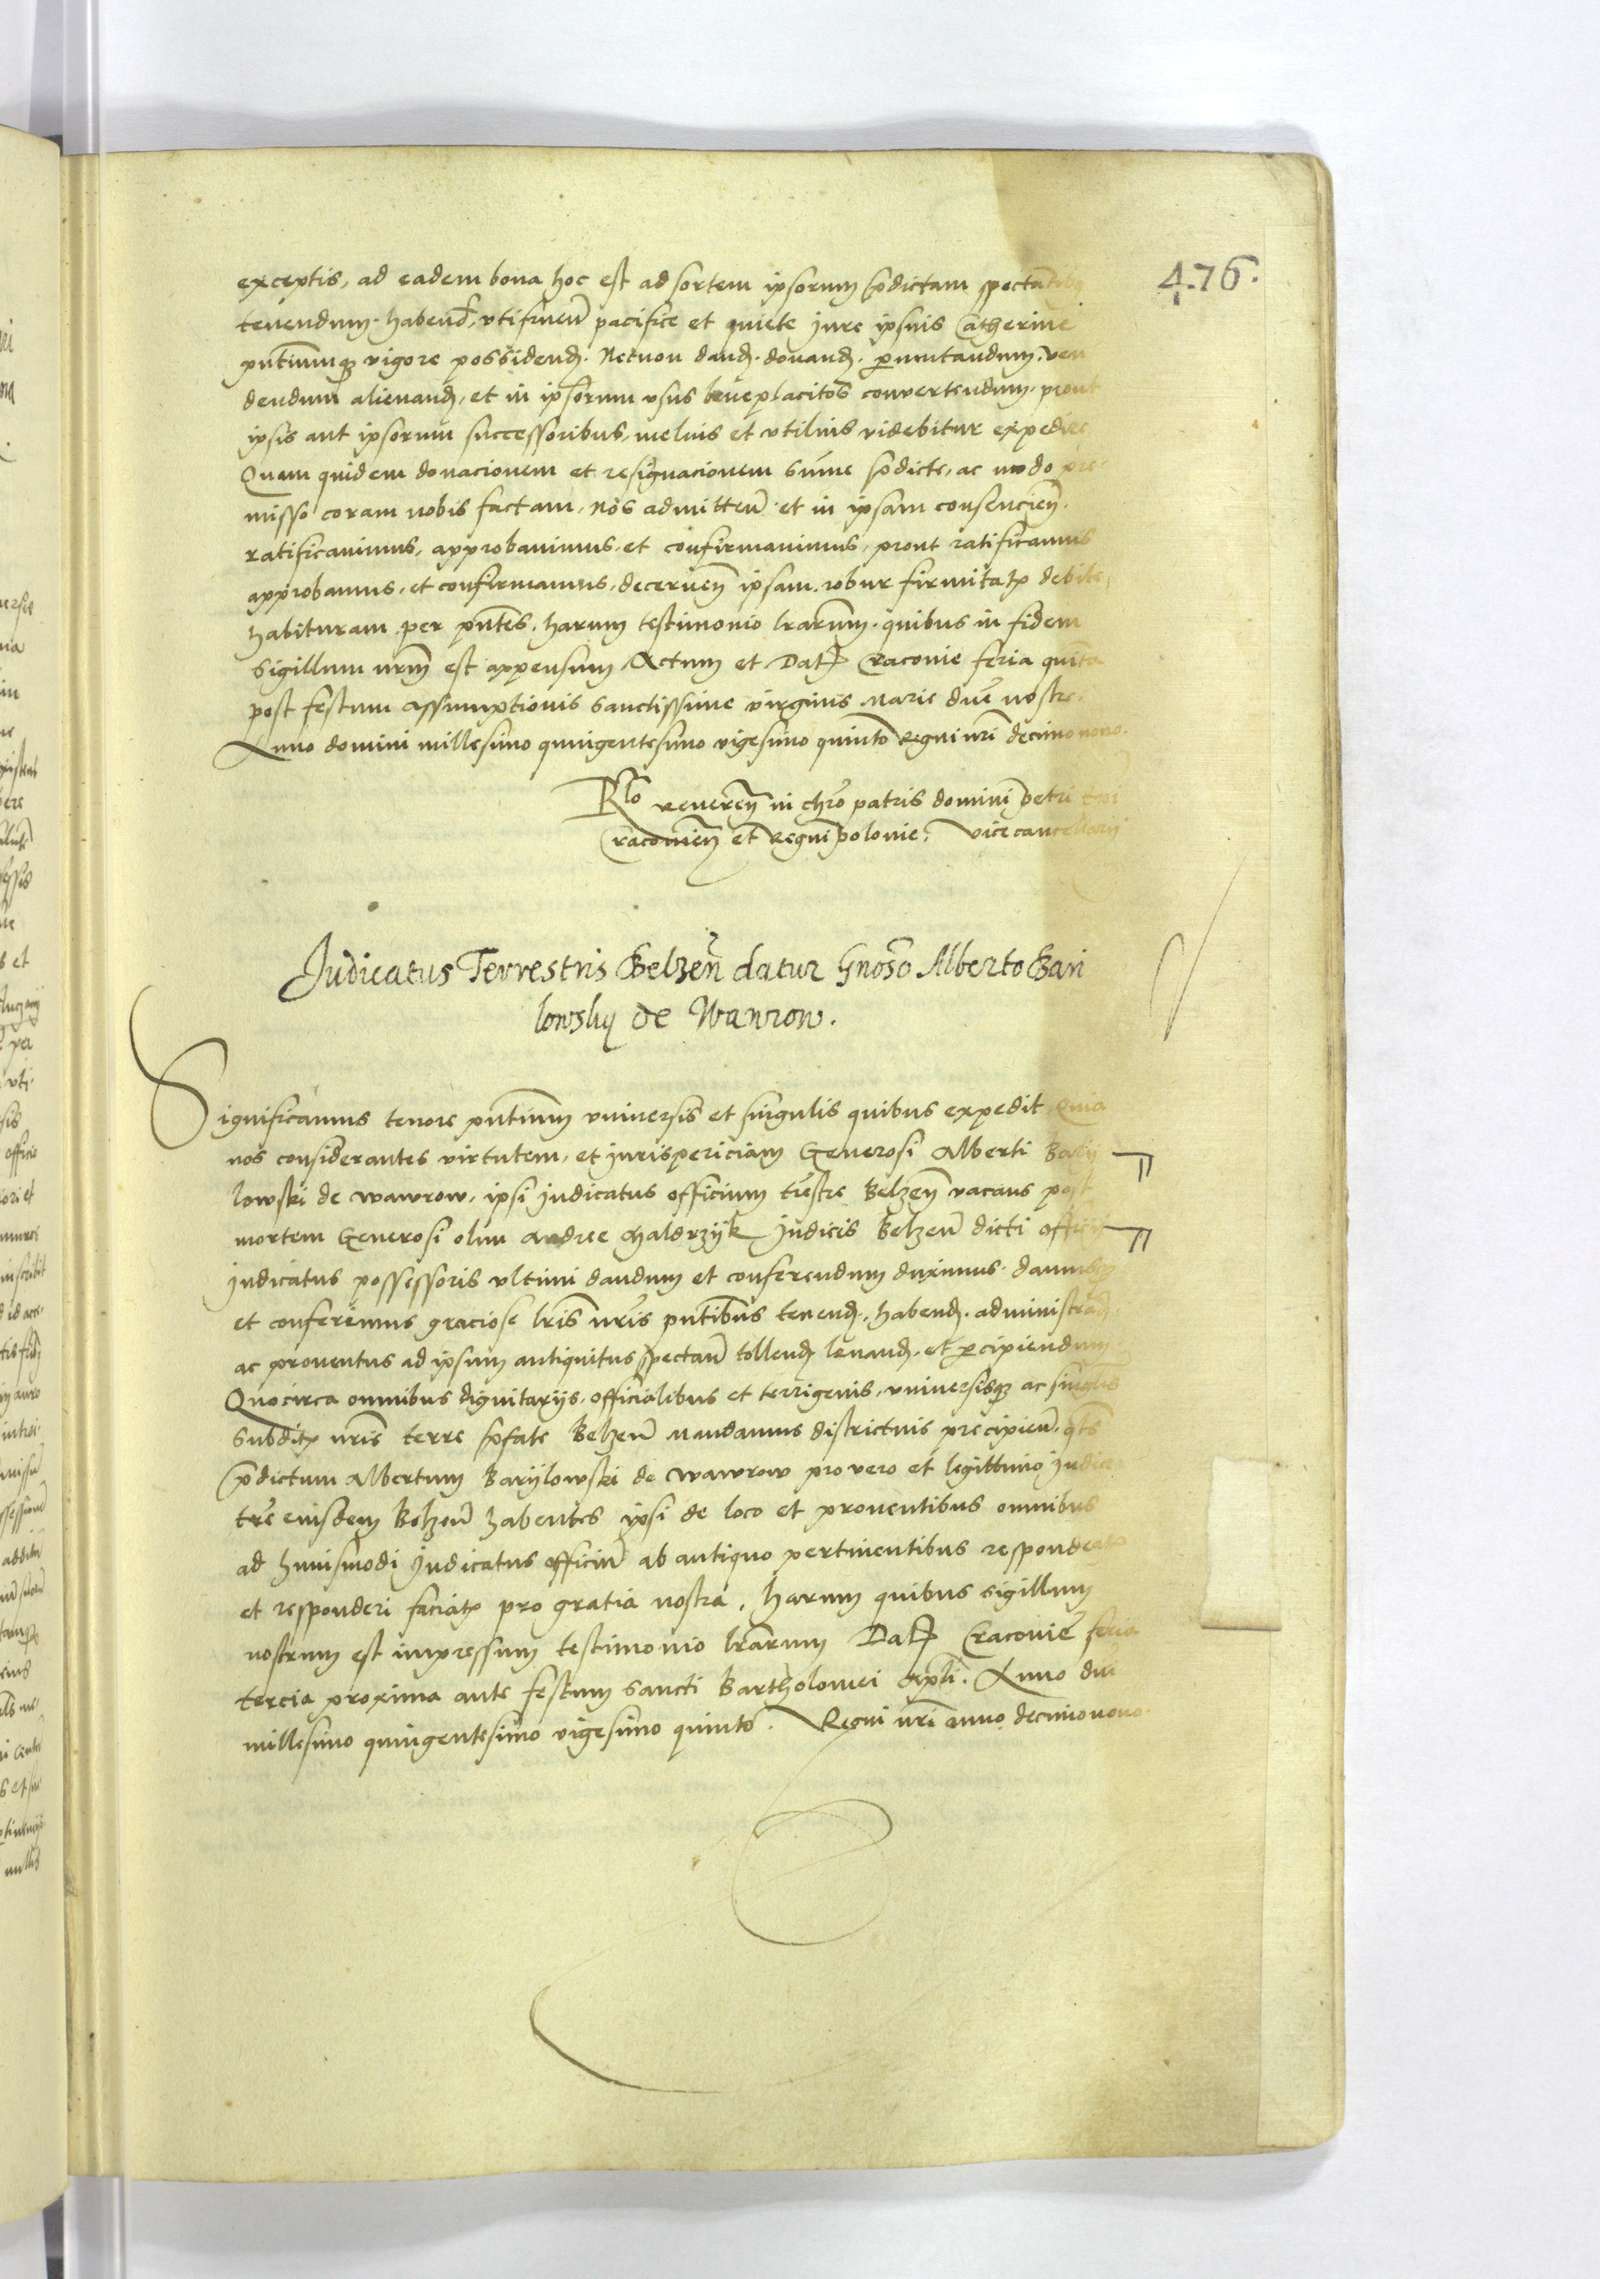 476.
exceptis, ad eadem bona hoc est ad sortem ipsorum pdictam spectantibus
tenendum. habend. utifruen pacifice et quiete jure ipsius Catherine
pntiumq vigore possidend. Necnon dand. donand. permutandum. ven
dendum alienand, et in ipsorum usus beneplacitos convertendum. prout
ipsis aut ipsorum successoribus, melius et utilius videbitur expedire
Quam quidem donacionem et resignacionem summe pdicte, ac modo pre
misso coram nobis factam, nos admitten et in ipsam consencien.
ratificavimus, approbavimus, et confirmavimus, prout ratificamus
approbamus, et confirmamus, decernen ipsam robur firmitatis debite,
habituram per pntes. harum testimonio lrarum. quibus in fidem
Sigillum nrm est appensum Actum et Dat Cracovie feria quinta
post festum Assumptionis Sanctissime virginis Marie dne nostre.
Anno domini millesimo quingentesimo vigesimo quinto Regni nri decimo nono.
Rlo reveren in chro patris domini Petri
Cracovien et Regni Polonie, vicecancellarii
Judicatus Terrestris Belzen datur Gnoso Alberto Bari
lowsky de Wawrow.
Significamus tenore pntium universis et singulis quibus expedit Quia
nos considerantes virtutem, et jurispericiam Generosi Alberti Barij
lowski de Wawrow, ipsi judicatus officium trestre Belzen vacans post
mortem Generosi olim Andree Maldrzyk Judicis Belzen dicti officij
judicatus possessoris ultimi dandum et conferendum duximus. damusq
et conferimus graciose lris nris pntibus tenend. habend. administrand.
ac proventus ad ipsum antiquitus spectan tollend levand. et percipiendum
Quocirca omnibus dignitarijs. officialibus et terrigenis, universisq ac singulis
Subditis nris terre pfate Belzen Mandamus districtius precipien. qts
pdictum Albertum Barijlowski de Wawrow pro vero et legittimo Judice
tre eiusdem Belzen habentes ipsi de loco et proventibus omnibus
ad huiusmodi Judicatus officiu ab antiquo pertinentibus respondeatis
et responderi faciatis pro gratia nostra, harum quibus sigillum
nostrum est impressum testimonio lrarum Dat Cracovie feria
tercia proxima ante festum Sancti Bartholomei apli. Anno dni
millesimo quingentesimo vigesimo quinto. Regni nri anno decimonono.